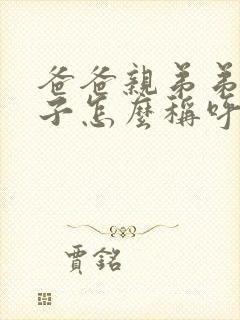 爸爸親弟弟
子怎麼稱呼
賈銘